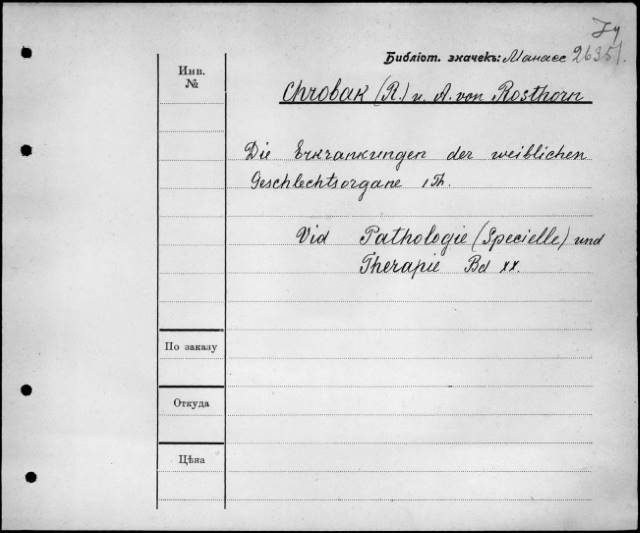 Библіот. значекъ: Манасс 26351.
Инв.
№
Chrobak (R.) u. A. von Rosthorn
Die Erkrankungen der weiblichen
Geschlechtsorgane 1 Th.
Vid Pathologie (Specielle) und
Therapie Bd XX.
По заказу
Откуда
Цѣна